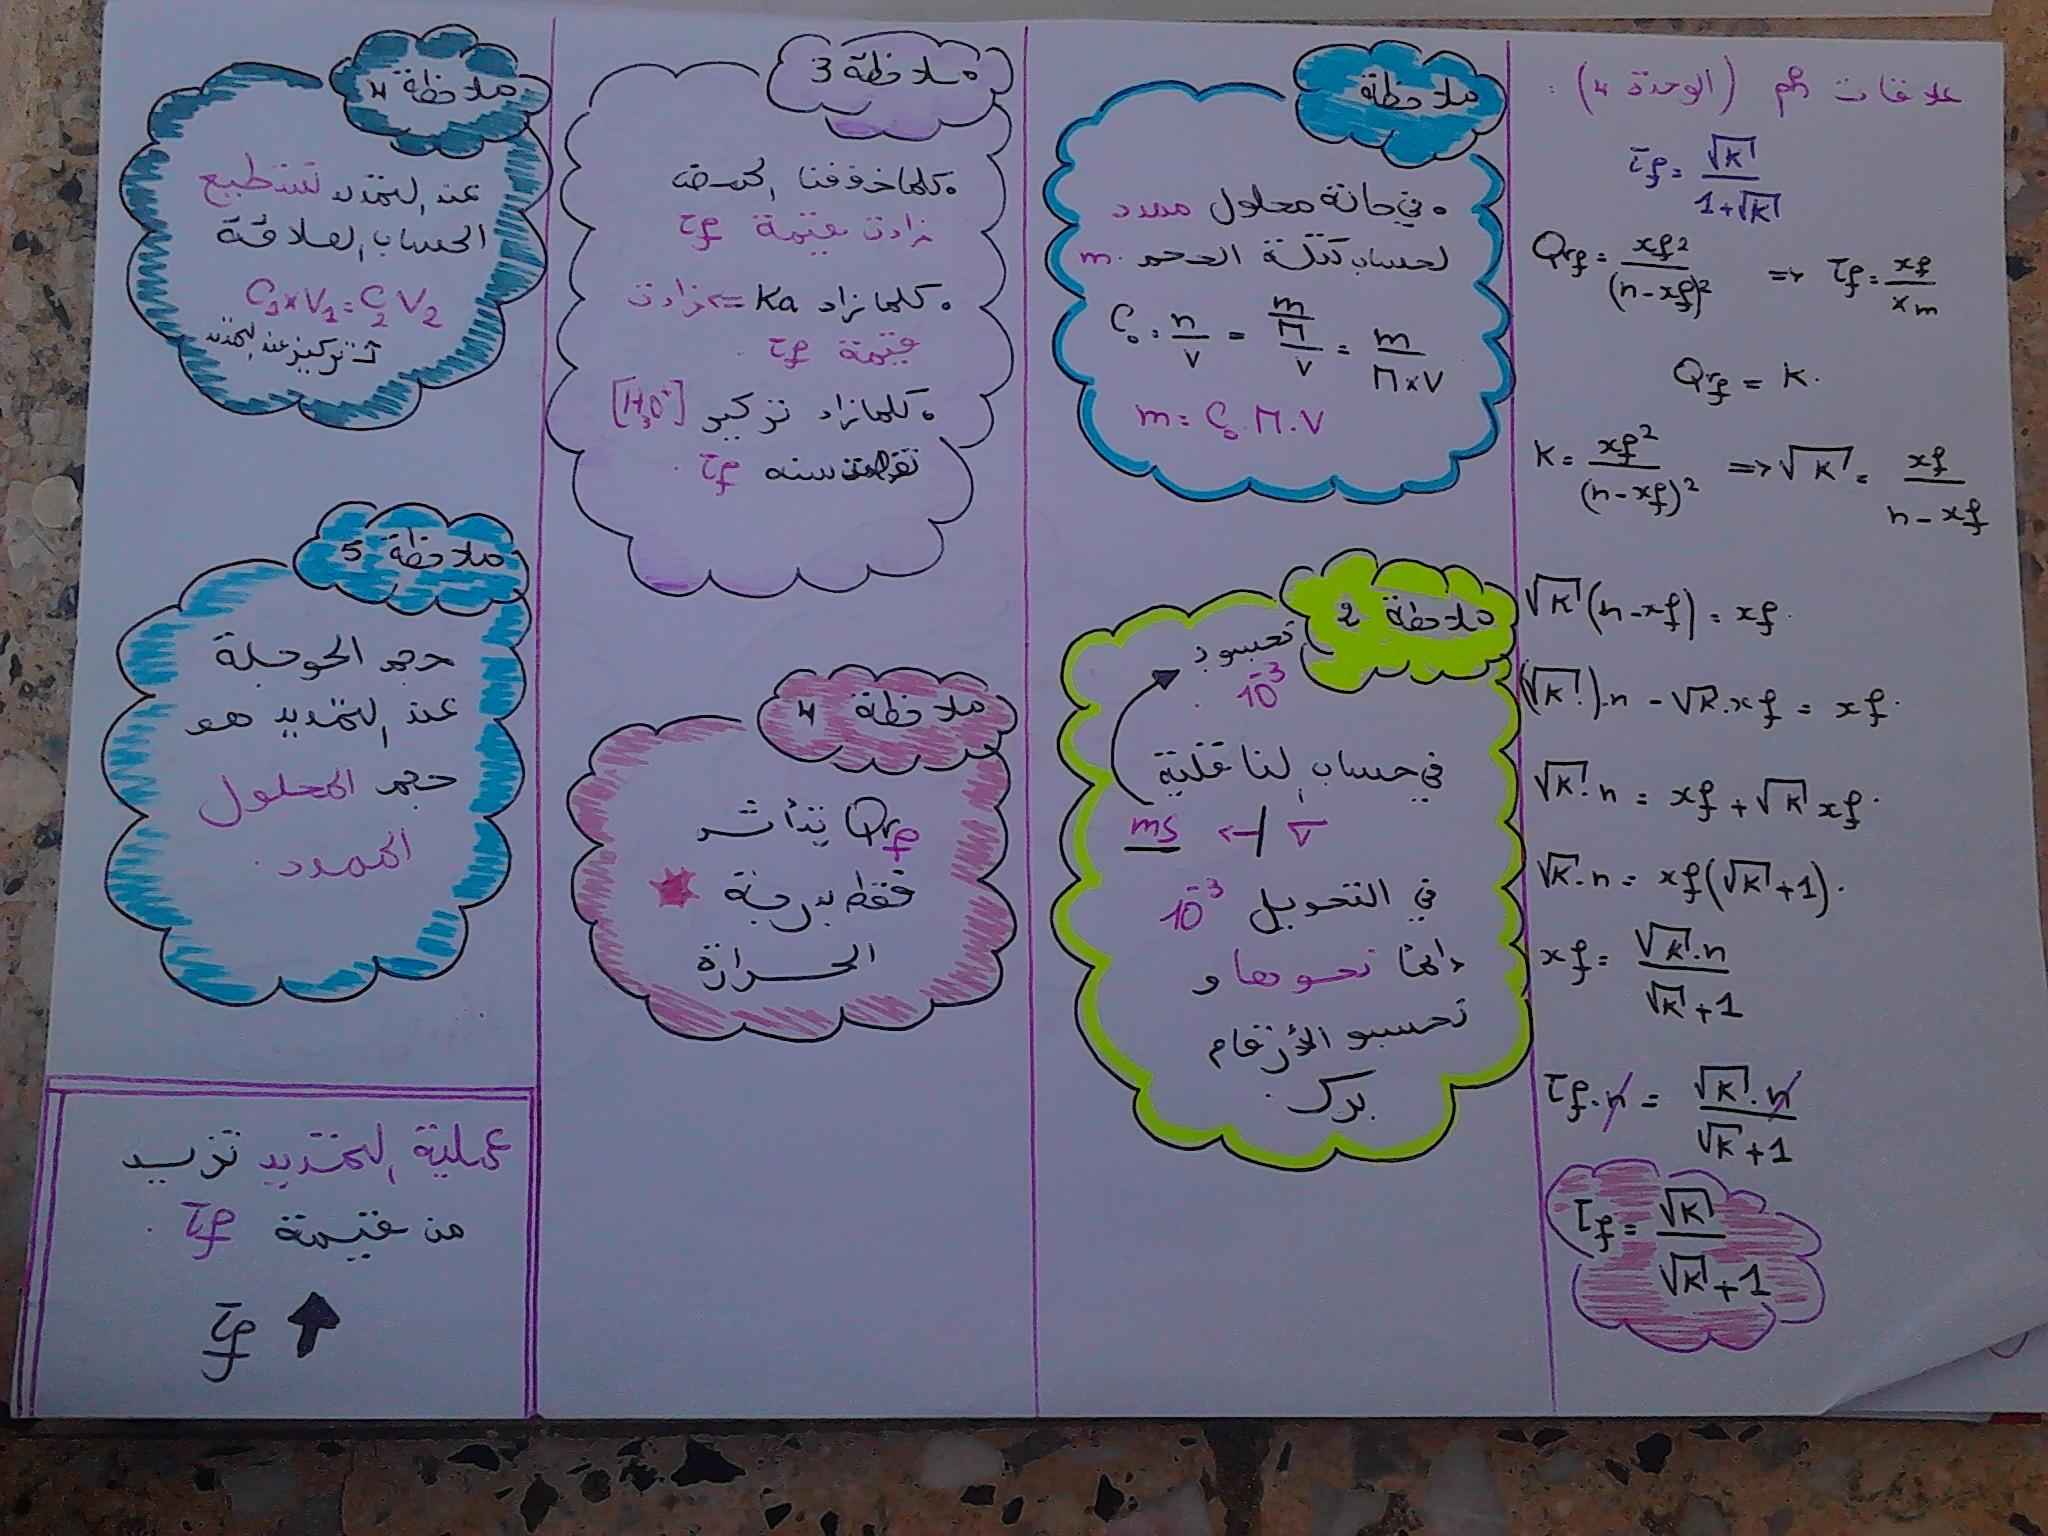 علاقات هم (الوحدة 4) :
τf = √K / 1+√K
Qrf = xf² / (n-xf)² => τf = xf / xm
Qrf = K.
K = xf² / (n-xf)² => √K = xf / n-xf
√K (n-xf) = xf.
(√K).n - √K.xf = xf.
√K.n = xf + √K xf.
√K.n = xf(√K+1).
xf = √K.n / √K+1
τf.n = √K.n / √K+1
τf = √K / √K+1
ملاحظة
• في حالة محلول ممدد
لحساب كتلة الحجم m.
C₀ = n/V = (m/M)/V = m / M×V
m = C₀.M.V
ملاحظة 2
نحسبو بـ
10⁻³
في حساب الناقلية
σ → mS
في التحويل 10⁻³
دائما نحوها و
نحسبو الأرقام
برك.
ملاحظة 3
• كلما خففنا الحمض
زادت قيمة τf
• كلما زاد Ka => زادت
قيمة τf.
• كلما زاد تركيز [H₃O⁺]
τf.
ملاحظة 4
Qrf يتأثر
فقط بدرجة
الحرارة
ملاحظة 4
عند التمدد نستطيع
الحساب العلاقة
C₁×V₁ = C₂V₂
تركيز عند التمديد
ملاحظة 5
حجم الحوجلة
عند التمديد هو
حجم المحلول
الممدد.
عملية التمديد تزيد
من قيمة τf.
τf ↑